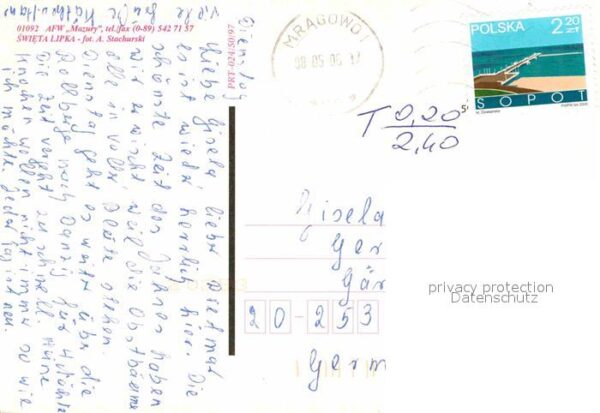 Viele Grüße Käthe + Hans
01092 AFW „Mazury”, tel./fax (0-89) 542 71 57
ŚWIĘTA LIPKA - fot. A. Stachurski
PRT-024/50/97
Dienstag
Liebe Gisela, lieber Dietmar
es ist wieder herrlich hier. Die
schönste Zeit des Jahres haben
wir erwischt weil die Obstbäume
alle in voller Blüte stehen.
Dienstag geht es weiter über die
Rollberge nach Danzig für 4 Nächte
Die Zeit vergeht zu schnell. Meine
Knochen wollen nicht immer so wie
ich möchte. Jeder Tag ist neu.
MRĄGOWO 1
08 05 06 17
POLSKA 2,20 ZŁ
SOPOT
T 0,20
2,40
Gisela
Ger
Gär
20-253
Germ
privacy protection
Datenschutz